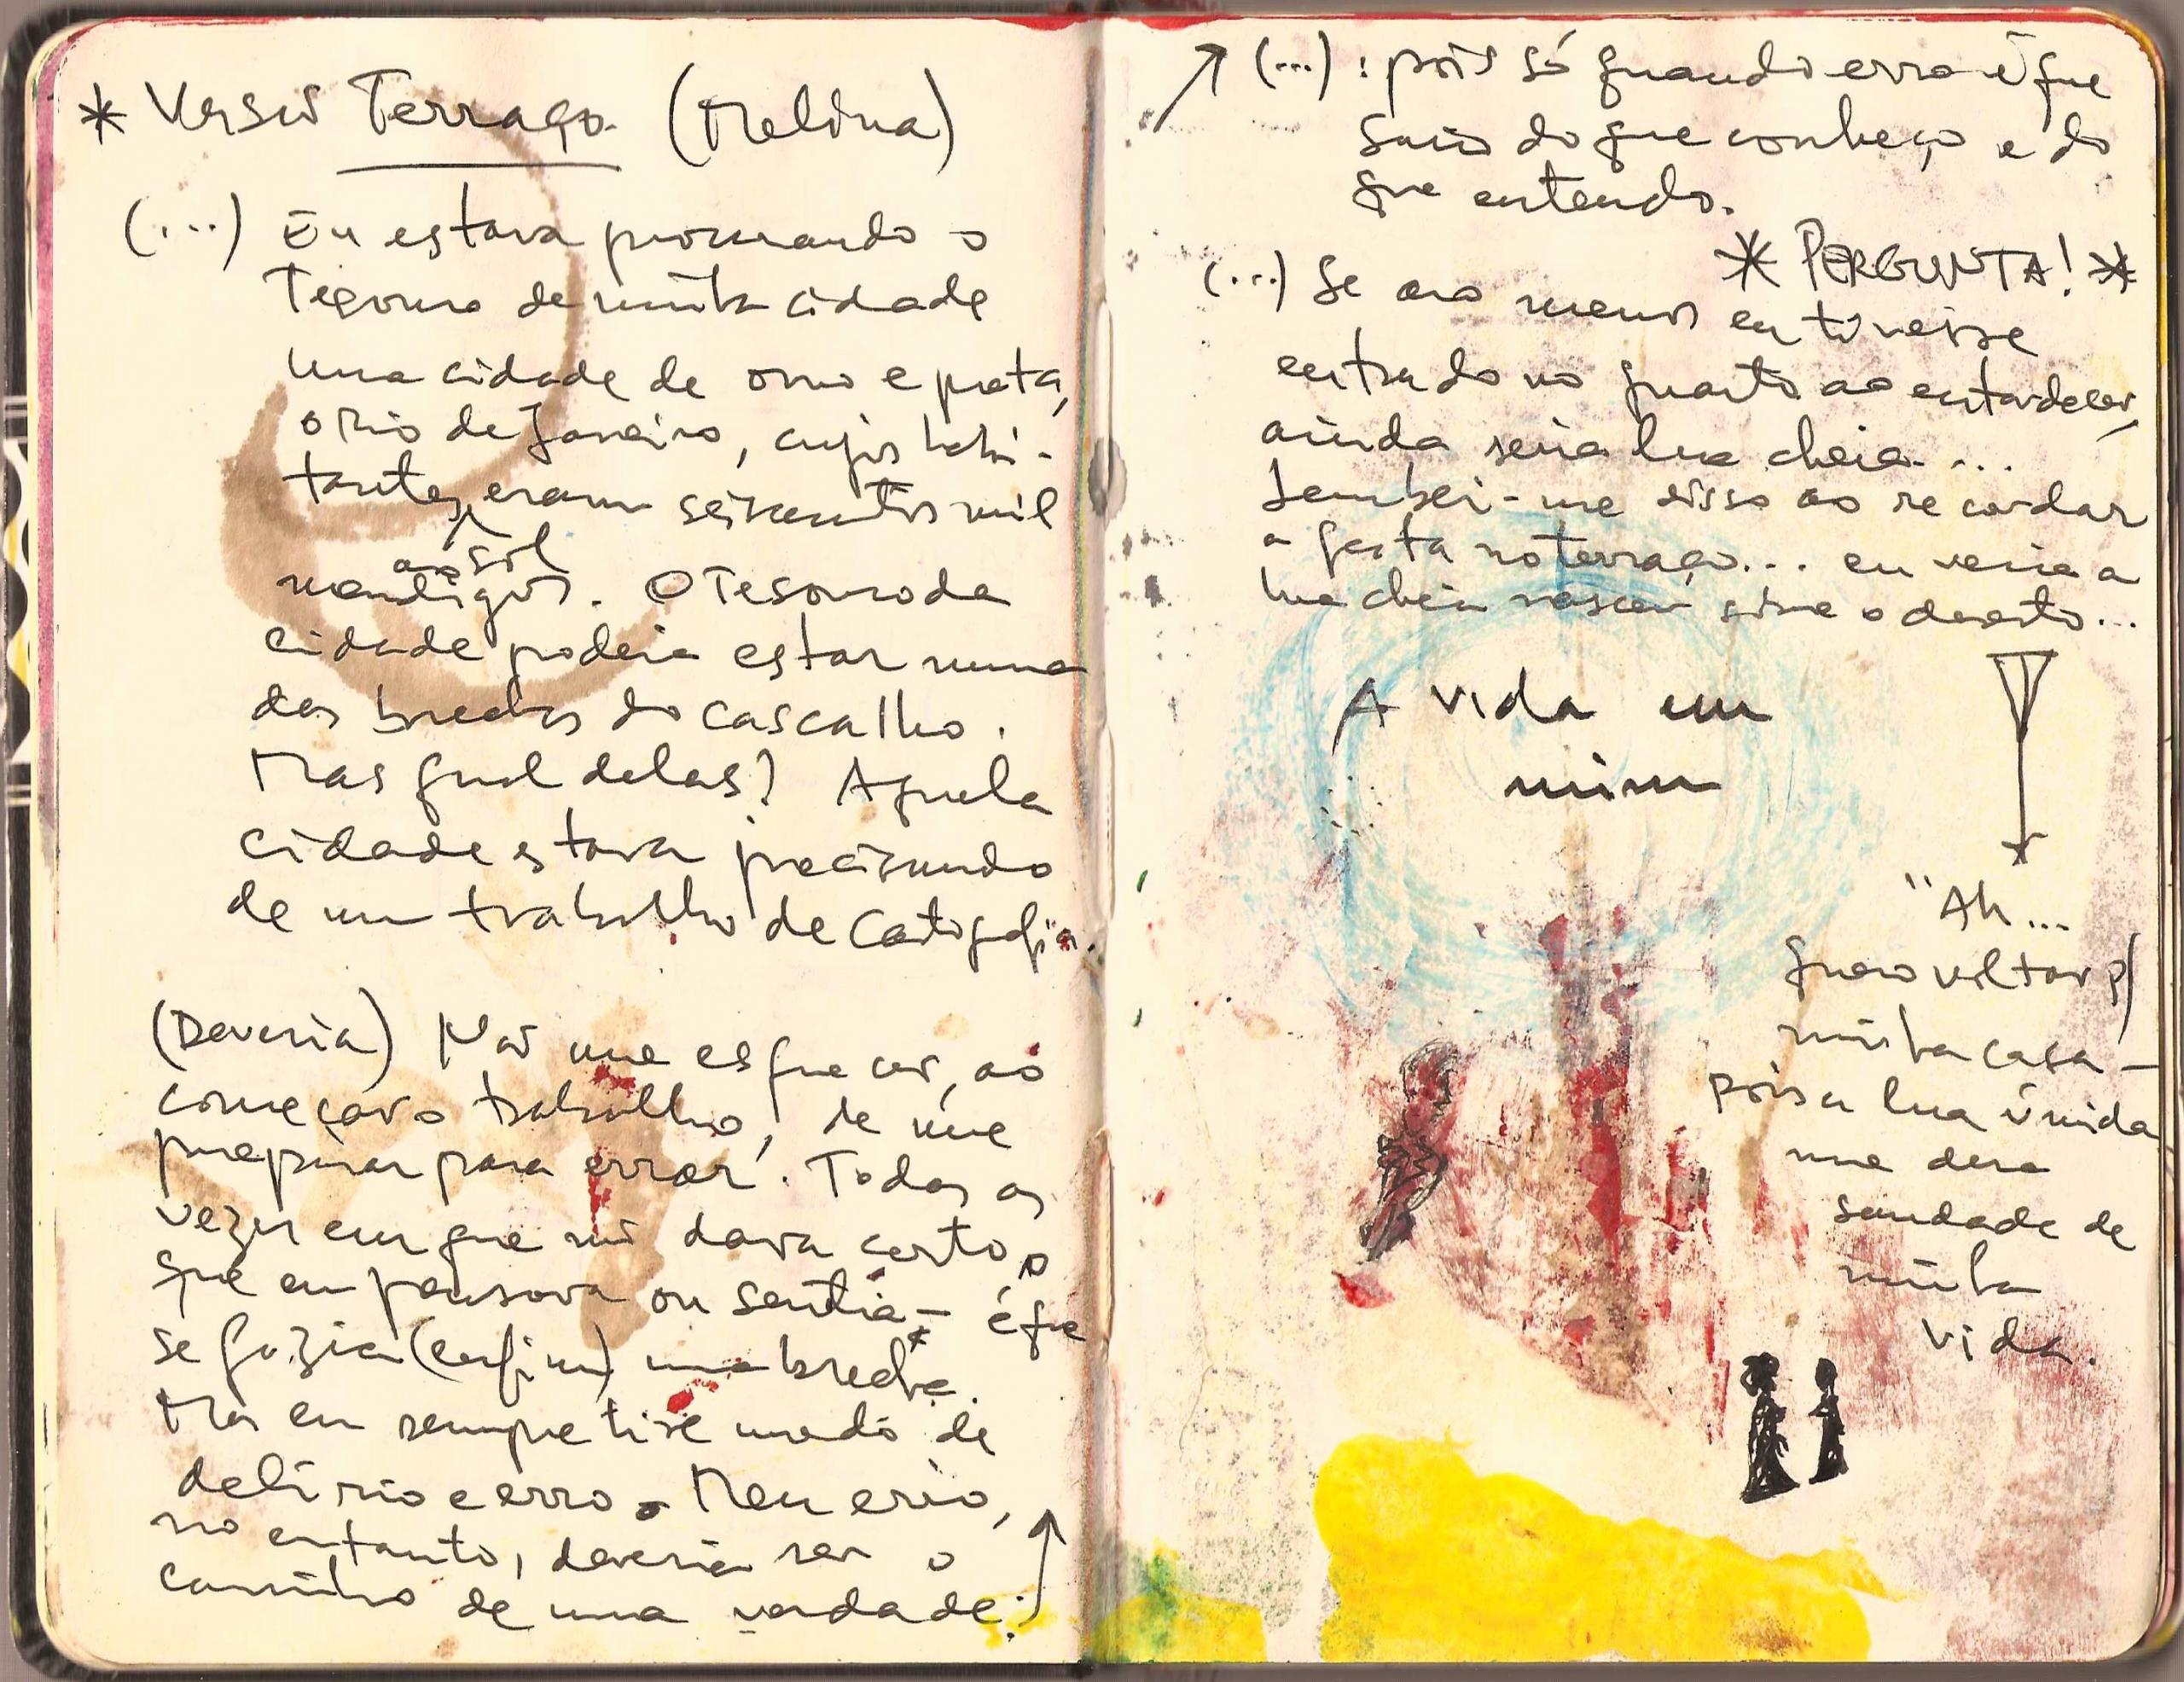 * Versão Terraço (Melina)
(...) Eu estava procurando o
Tesouro de minha cidade
uma cidade de ouro e prata,
o Rio de Janeiro, cujos habi-
tantes eram seiscentos mil
ao sol
mendigos. O Tesouro da
cidade poderia estar numa
das brechas do cascalho.
Mas qual delas? Aquela
cidade estava precisando
de um trabalho de cartografia.
(Deveria) Não me esquecer, ao
começar o trabalho, de me
preparar para errar. Todas as
vezes em que não dava certo o
que eu pensava ou sentia - é que
se fazia (enfim) uma brecha.
Mas eu sempre tive medo de
delírio e erro. Meu erro,
no entanto, deveria ser o
caminho de uma verdade:
(...) : pois só quando erro é que
saio do que conheço e do
que entendo.
* PERGUNTA! *
(...) Se ao menos eu tivesse
entrado no quarto ao entardecer,
ainda seria lua cheia....
Lembrei-me disso ao recordar
a festa no terraço... eu veria a
lua cheia nascer sobre o deserto...
A vida em
mim
"Ah...
quero voltar p/
minha casa -
pois a lua úmida
me dera
saudade de
minha
vida.